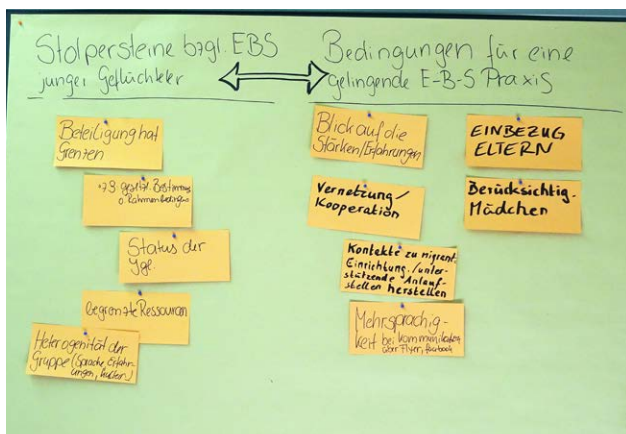 Stolpersteine bzgl. EBS
junger Geflüchteter
Bedingungen für eine
gelingende E-B-S Praxis
Beteiligung hat
Grenzen
z.B. gesetzl. Bestimmg
o. Rahmenbeding
Status der
Jgl.
begrenzte Ressourcen
Heterogenität der
Gruppe (Sprache, Erfahr-
ungen,
Blick auf die
Stärken/Erfahrungen
Vernetzung/
Kooperation
Kontakte zu migrant.
Einrichtung./unter-
stützende Anlauf-
stellen herstellen
Mehrsprachig-
keit bei Kommunikation
über Flyer, facebook
EINBEZUG
ELTERN
Berücksichtig.
Mädchen